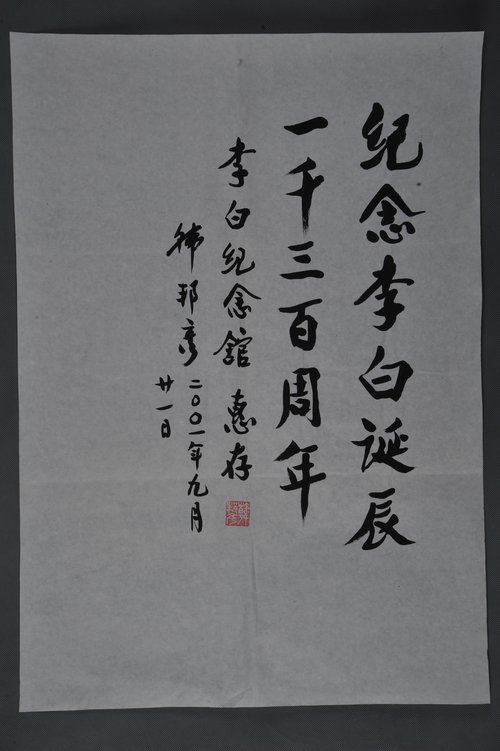 纪念李白诞辰
一千三百周年
李白纪念舘 惠存
韩邦彦 二〇〇一年九月
廿一日